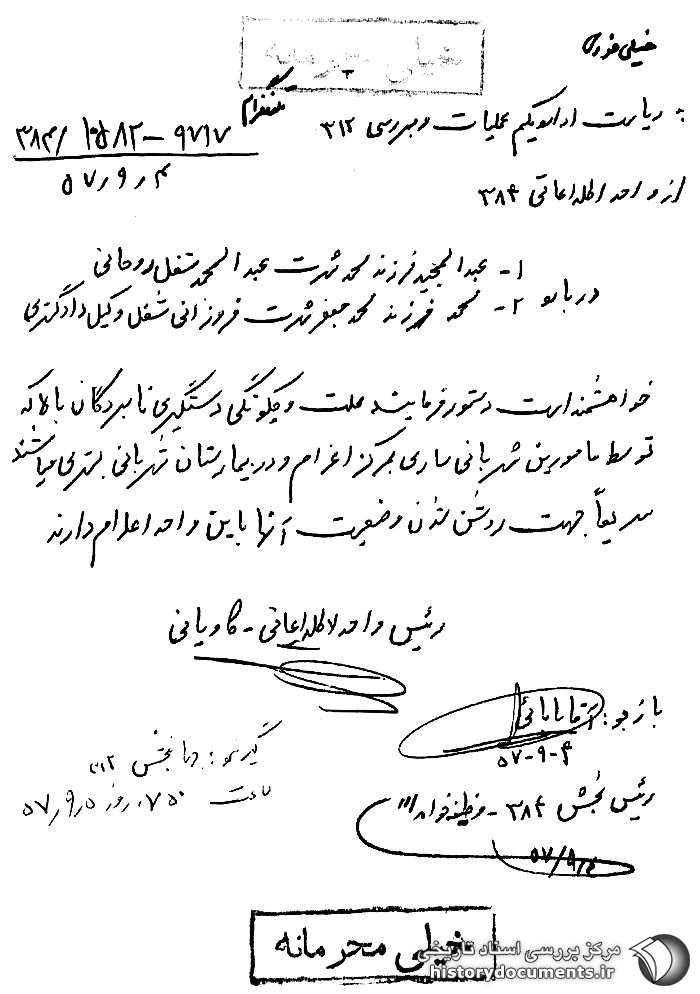 خیلی محرمانه
خیلی فوری
تلگرام
به ریاست اداره یکم عملیات و بررسی ۳۱۲
۳۸۴/ ۱۵۸۲ – ۹۷۱۷
۴ ر ۹ ر ۵۷
از واحد اطلاعاتی ۳۸۴
۱- عبدالمجید فرزند محمد شهرت عبدالصمد شغل روحانی
درباره ۲- محمد فرزند محمد جعفر شهرت فروزانی شغل وکیل دادگستری
خواهشمند است دستور فرمایند علت و چگونگی دستگیری نامبردگان بالا که
توسط مامورین شهربانی ساری بمرکز اعزام و در بیمارستان شهربانی بستری میباشند
سریعاً جهت روشن شدن وضعیت آنها باین واحد اعلام دارند
رئیس واحد اطلاعاتی - کاویانی
بازجو: آقابابائی
۵۷-۹-۴
گیرنده: بخش ۳۱۲
ساعت ۰۷۵۰ روز ۵۷٫۹٫۵
رئیس بخش ۳۸۴ - وظیفه‌خواه
۵۷/۹/۴
خیلی محرمانه
مرکز بررسی اسناد تاریخی
historydocuments.ir